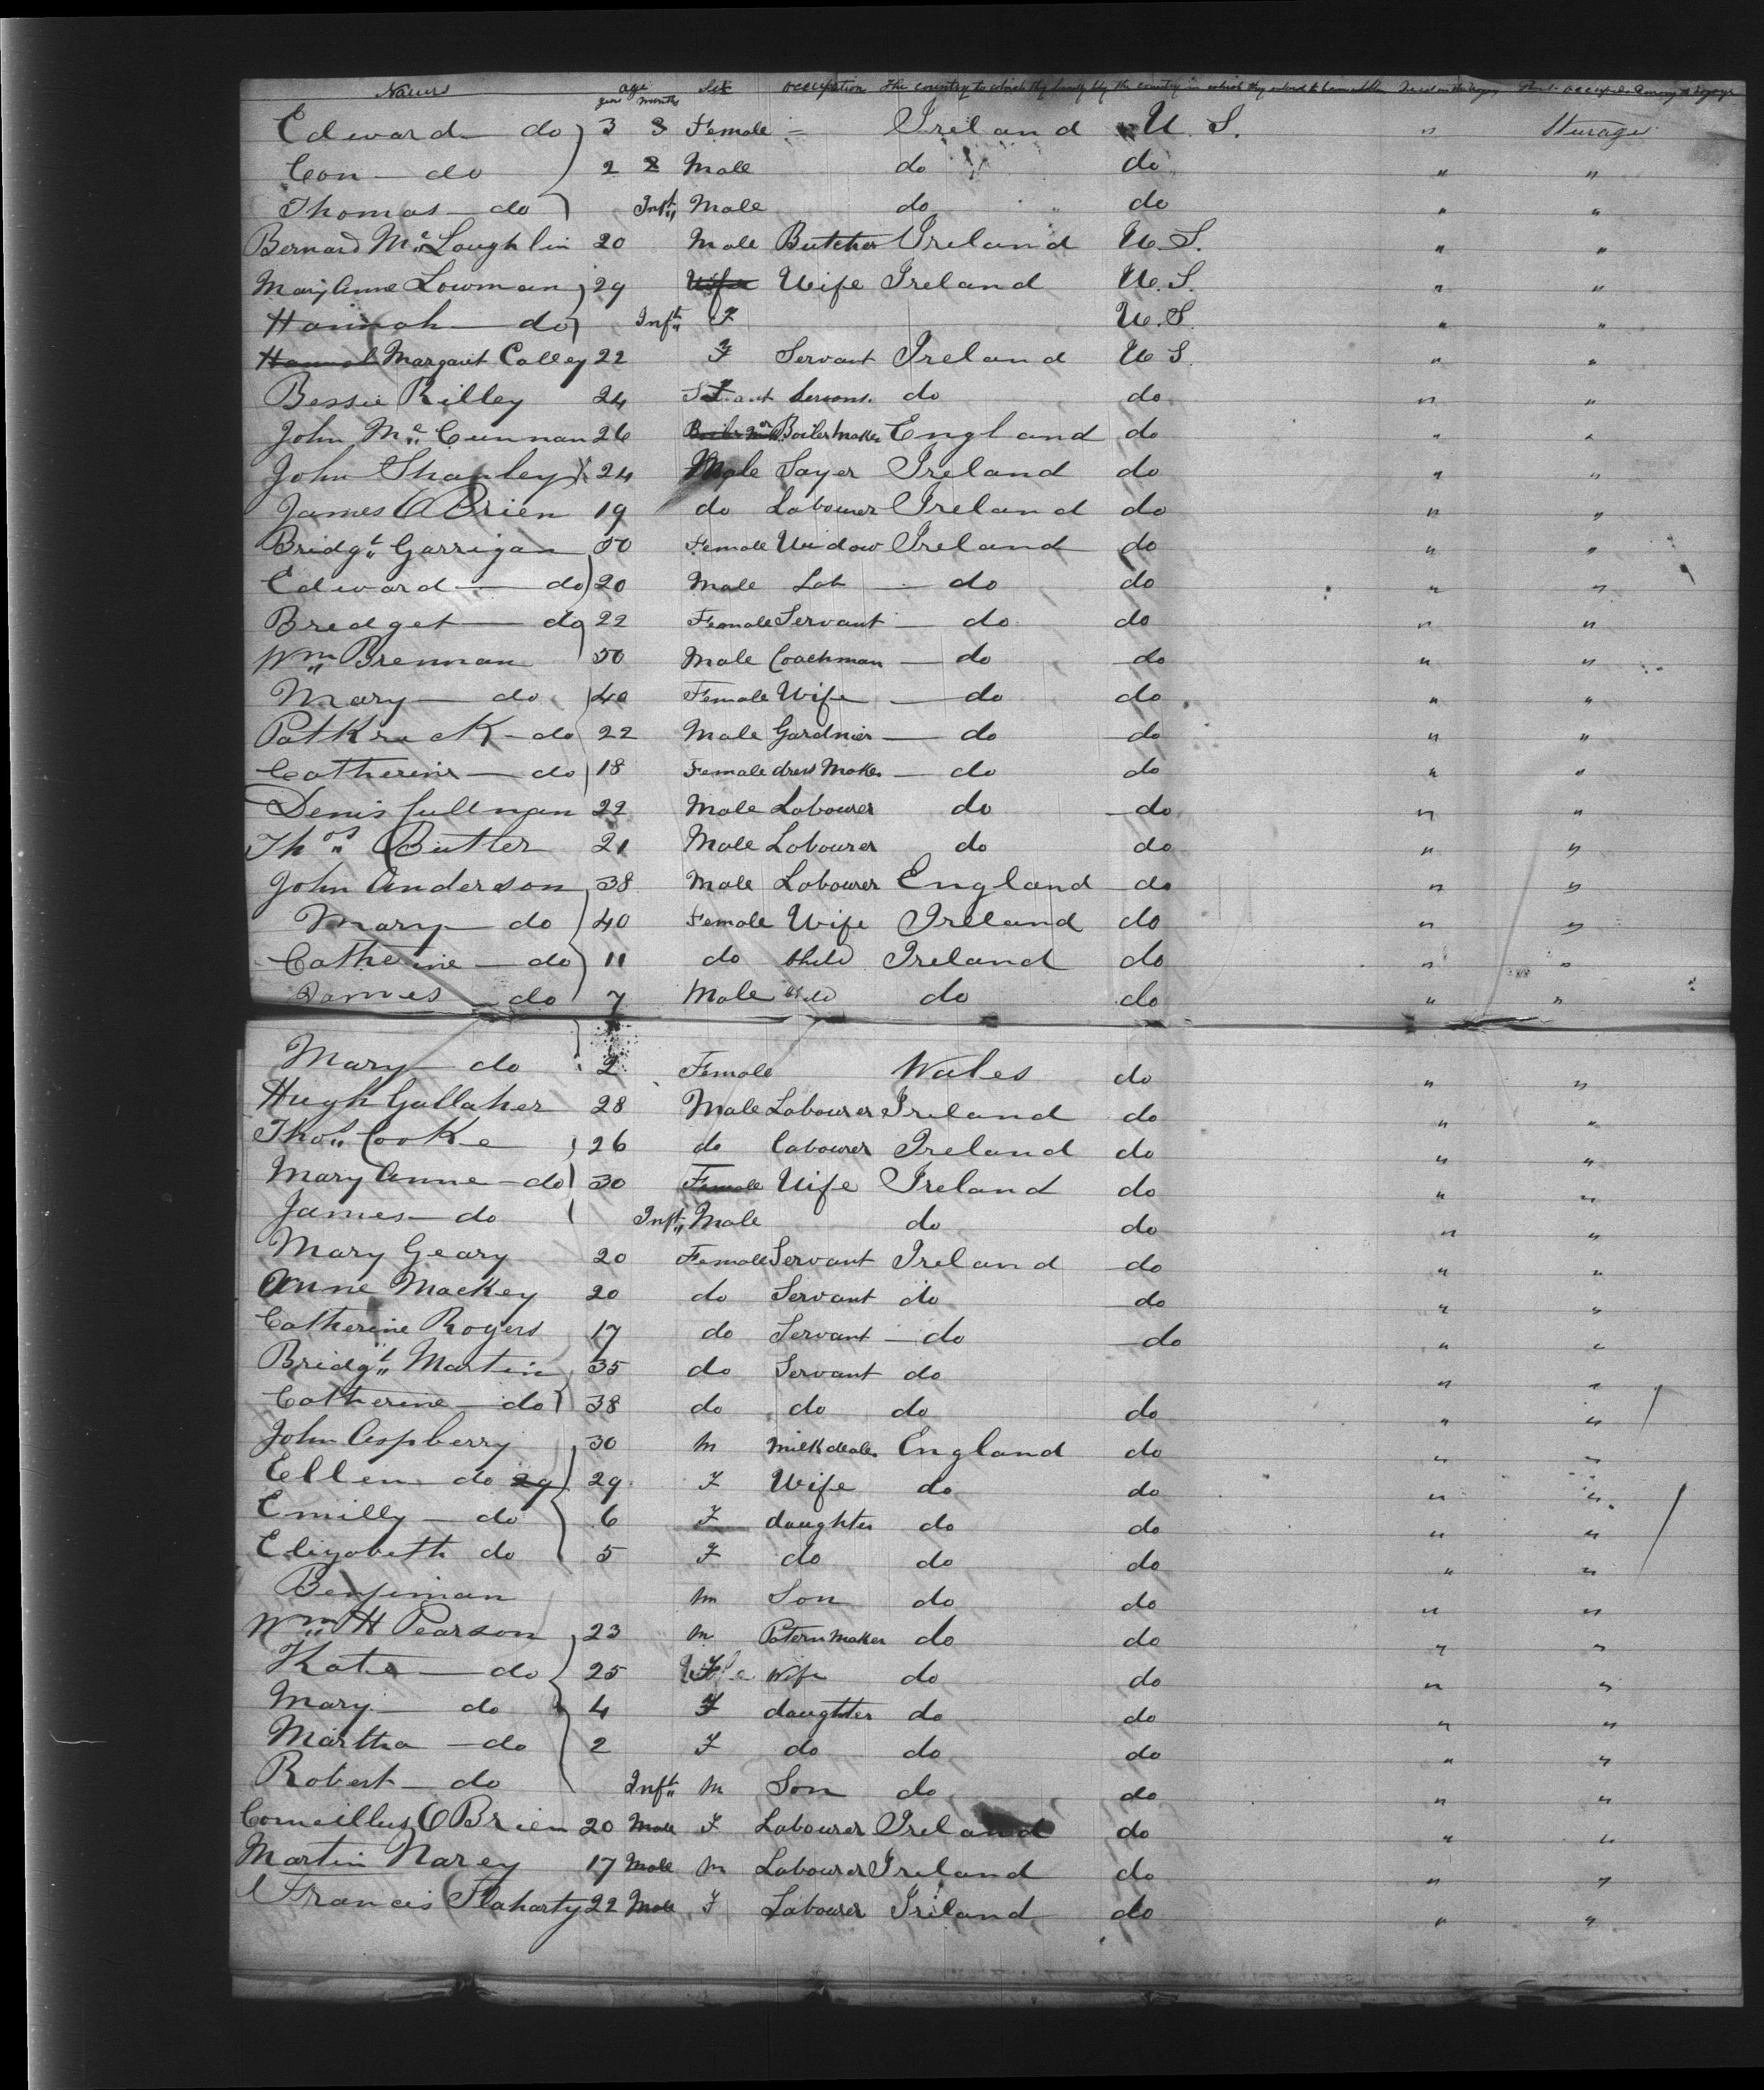 Names age years months Sex occupation The country to which they severally the country in which they intend to become Died on the Voyage Part occupied during the Voyage
Edward do 3 3 Female Ireland U. S. " Sturage
Con do 2 2 Male do do " "
Thomas do Inft Male do do " "
Bernard Mc Loughlin 20 Male Butcher Ireland U. S. " "
Mary Anne Lowman 29 Wife Wife Ireland U. S. " "
Hannah do Inft F U. S. " "
Hannah Margaret Colley 22 F Servant Ireland U S. " "
Bessie Rilley 24 F Servant do do " "
John Mc Cunnan 26 Boiler Maker England do " "
John Shanley X 24 Male Sayer Ireland do " "
James O Brien 19 do Labourer Ireland do " "
Bridgt Garrigan 50 Female Widow Ireland do " "
Edward do 20 Male Lab do do " "
Bredget do 22 Female Servant do do " "
Wm Brennan 50 Male Coachman do do " "
Mary do 40 Female Wife do do " "
Patkrick do 22 Male Gardnier do do " "
Catherine do 18 Female dress Maker do do " "
Denis Cullman 22 Male Labourer do do " "
Thos Butler 21 Male Labourer do do " "
John Anderson 38 Male Labourer England do " "
Mary do 40 Female Wife Ireland do " "
Catherine do 11 do Child Ireland do " "
James do 7 Male Child do do " "
Mary do 2 Female Wales do " "
Hugh Gallaher 28 Male Labourer Ireland do " "
Thos Cooke 26 do Labourer Ireland do " "
Mary Anne do 30 Female Wife Ireland do " "
James do Inft Male do do " "
Mary Geary 20 Female Servant Ireland do " "
Anne Mackey 20 do Servant do do " "
Catherine Rogers 17 do Servant do do " "
Bridgt Martin 35 do Servant do " "
Catherine do 38 do do do do " "
John Aspberry 30 m milk dealer England do " "
Ellen do 29 29 F Wife do do " "
Emilly do 6 F daughter do do " "
Elizabeth do 5 F do do do " "
Benjiman m Son do do " "
Wm H Pearson 23 m Patern Maker do do " "
Kate do 25 F Wife do do " "
Mary do 4 F daughter do do " "
Martha do 2 F do do do " "
Robert do Inft m Son do do " "
Corneillus O Brien 20 Male F Labourer Ireland do " "
Martin Narey 17 Male m Labourer Ireland do " "
Francis Flaharty 22 Male F Labourer Ireland do " "